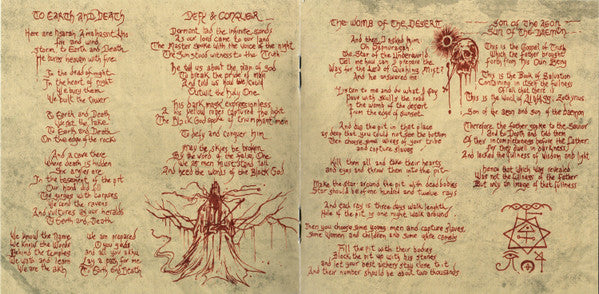 TO EARTH AND DEATH
for and wind
storm, to Earth and Death
He bury heaven with fire
In the dead of night
In the heart of night
We bury them
We built the tower
To Earth and Death
To Earth and Death
On the edge of the rocks
And a cave there
Where death is hidden
In the basement of the pit
Our hand did fill
The gorges with corpses
We and the ravens
And vultures as our heralds
To Earth and Death
We know the Name
We know the Words
Behind the temples
We wait and learn
We are the
We are prepared
O you gods
and all you
pay a pass for me
To Earth and Death
DEFY & CONQUER
Dormant laid the infinite sands
As our lord came to our land
The Master spoke with the voice of the night
The Sun stood witness to this Truth
He told us about the plan of God
To break the pride of man
And told us how we could
Outwit the Holy One
His dark magic expressionless
A pale yellow paper captured the light
The Black God spoke of triumphant men
To defy and conquer him
May the skies be broken
By the word of the false One
We as men must stand tall
And heed the words of the Black God
THE WOMB OF THE DESERT
And then I asked him
Oh
the Star of the Underworld
Tell me how can I prepare the
Way for the Lord of Mist?
And he answered me
Listen to me and do what I say
Pave with skulls the road
in the womb of the desert
from the edge of sunset
And dig the pit in that place
so deep that you could not see the bottom
Then choose good wives of your tribe
and capture slaves
Kill them all and take their hearts
and eyes and throw them into the pit
Make the star around the pit with dead bodies
Star should be four hundred and twelve rays
And each ray is three days walk length
Hole of the pit is one night walk around
Then you choose some young men and capture slaves,
some women and children and some white camels
Fill the pit with their bodies
Block the pit up with big stones
and let your best archers stay close to it
And their number should be about two thousands
SON OF THE AEON
SUN OF THE DAEMON
This is the Gospel of Truth
Which the father brought
forth from his Own Being
This is the Book of Salvation
Containing in itself the fullness
Of all that there is
This is the Word of
Son of the aeon and sun of the daemon
Therefore the father spoke to the Savior
And to Death and told them
Of their incompleteness before He Father
For they dwell in darkness
And lacked the fullness of Wisdom and light
Whence that which was revealed
Was not the fullness of the father
But only an image of that fullness